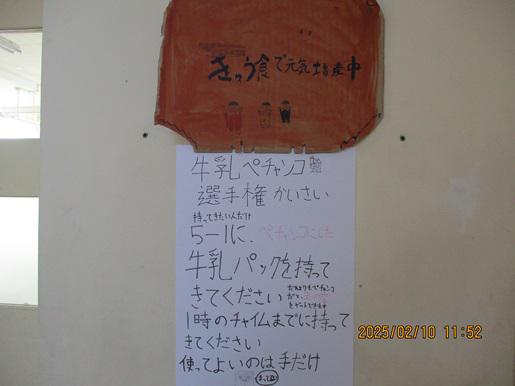 きゅう食で元気増産中
牛乳ペチャンコ
選手権かいさい
持ってきたい人だけ
5-1に、ペチャンコにした
牛乳パックを持って
きてください
1時のチャイムまでに持って
きてください
使ってよいのは手だけ
2025/02/10 11:52